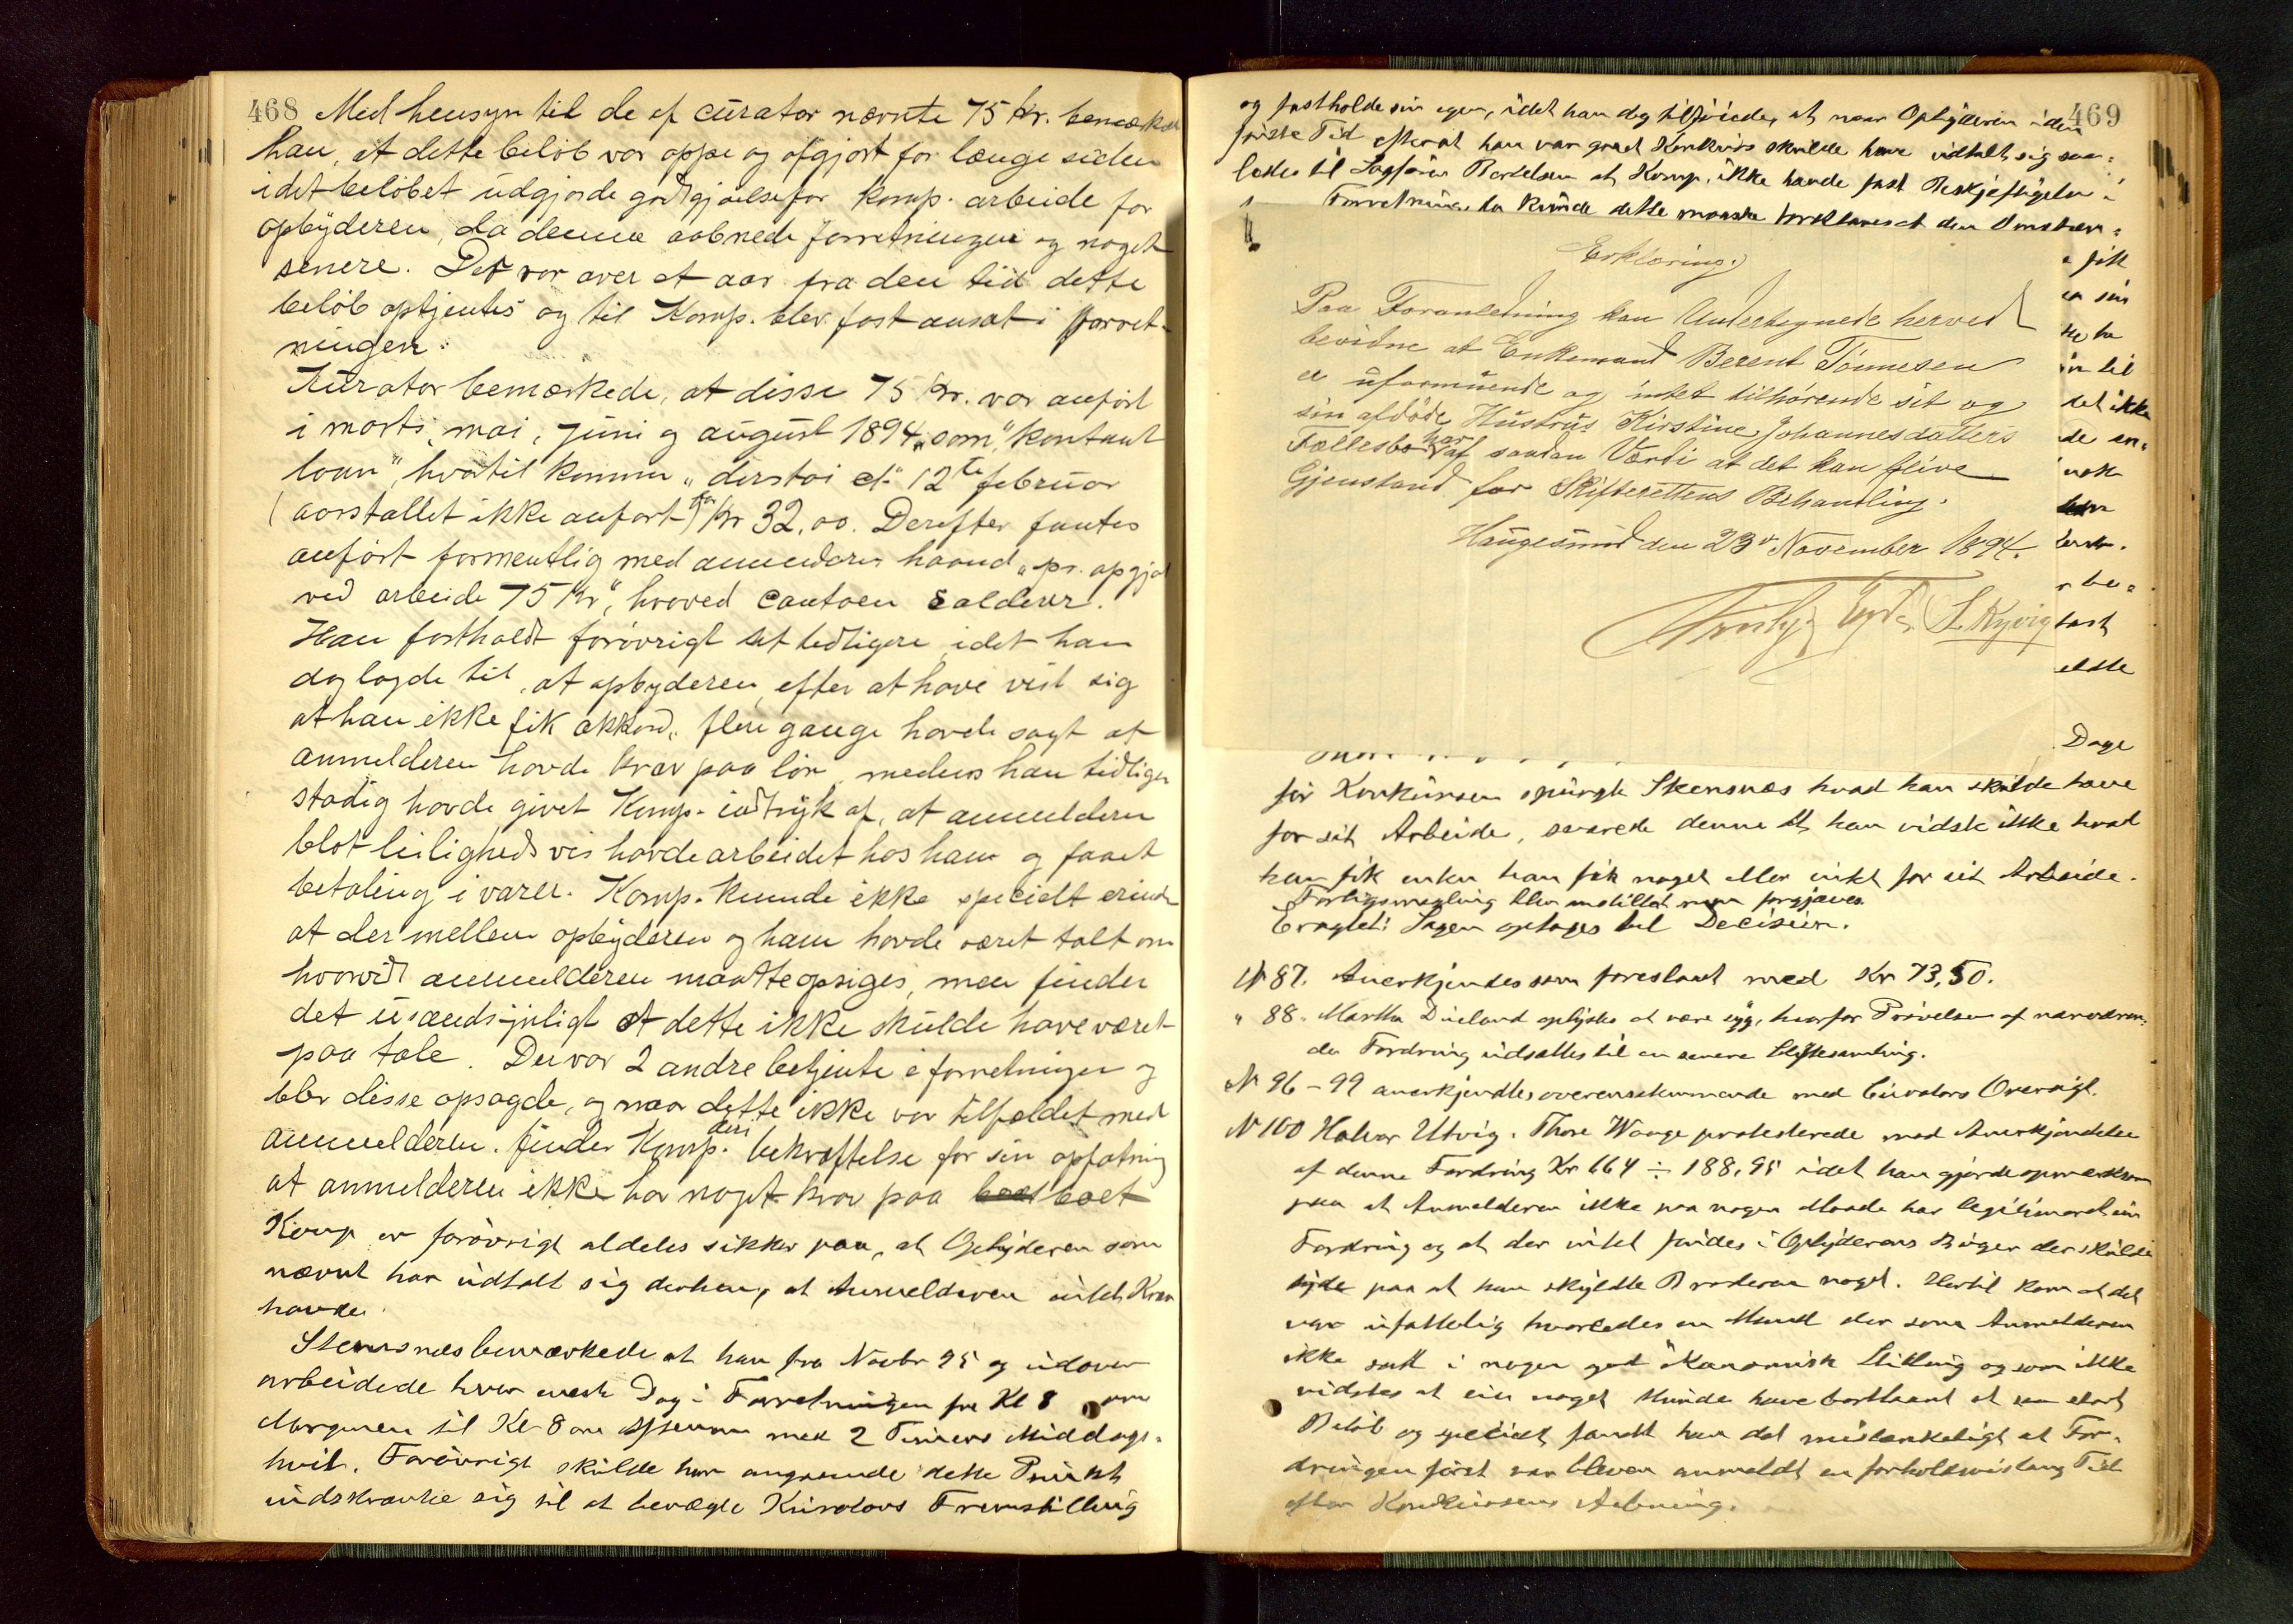 468 Med hensyn til de af curator nævnte 75 kr. bemærkede
han, at dette beløb var oppe og afgjort for længe siden
idet beløbet udgjorde godtgjørelse for komp. arbeide for
opbyderen, da denne aabnede forretningen og noget
senere. Det var over et aar fra den tid dette
beløb optjentes og til Komp. blev fast ansat i forret-
ningen.
Kurator bemærkede, at disse 75 Kr. var anført
i marts, mai, juni og august 1894 som "kontant
laan", hvortil kommer "derstoi et" 12te februar
(aarstallet ikke anført) for Kr 32,00. Derefter fantes
anført formentlig med anmelderens haand "pr. opgjør
ved arbeide 75 Kr", hvorved contoen salderer.
Han fastholdt forøvrigt sit tidligere idet han
dog lagde til, at opbyderen, efter at have vist sig
at han ikke fik akkord, flere gange havde sagt at
anmelderen havde krav paa løn, medens han tidligere
stadig havde givet Komp. indtryk af, at anmelderen
blot leilighedsvis havde arbeidet hos ham og faaet
betaling i varer. Komp. kunde ikke specielt erindre
at der mellem opbyderen og ham havde været talt om
hvorvidt anmelderen maatte opsiges, men finder
det usandsynligt at dette ikke skulde have været
paa tale. Der var 2 andre betjente i forretningen og
blev disse opsagde, og naar dette ikke var tilfældet med
anmelderen. finder Komp. deri bekræftelse for sin opfatning
at anmelderen ikke har noget krav paa boet
Komp er forøvrigt aldeles sikker paa, at Opbyderen som
nævnt har udtalt sig derhen, at Anmelderen intet Krav
havde.
Stensnæs bemærkede at han fra Novbr 95 og udover
arbeidede hver evest Dag i Forretningen fra Kl 8 om
Morgenen til Kl 8 om Aftenen med 2 Timers Middags-
hvil. Forøvrigt skulde han angaaende dette Punkt
indskrænke sig til at benægte Kurators Fremstilling
469
og fastholde sin egen, idet han dog tilføiede, at naar Opbyderen i den
første Tid efterat han var gaaet Konkurs skulde have udtalt sig saa-
ledes til Sagfører Bertelsen at Komp. ikke havde fast Beskjæftigelse i
Forretningen, da kunde dette maaske forklares at den Omstæn-
Erklæring.
Paa Foranledning kan Undertegnede herved
bevidne at Enkemand Berent Tønnesen
er uformuende og intet tilhørende sit og
sin afdøde Hustrus Kirstine Johannesdatters
Fællesbo har af saadan Værdi at det kan blive
Gjenstand for Skifterettens Behandling.
Haugesund den 23de November 1894.
S. Kyvig
fik
sin
til
det ikke
de en-
nok
be-
fast
Dage
før Konkursen spurgte Stensnæs hvad han skulde have
for sit Arbeide, svarede denne at han vidste ikke hvad
han fik enten han fik noget eller intet for sit Arbeide.
Forligsmægling blev indstillet men forgjæves.
Eragtet: Sagen optages til Decision.
N 87. Anerkjendes som foreslaaet med Kr 73,50.
" 88. Martha Dueland oplystes at være syg, hvorfor Prøvelsen af nærværen-
de Fordring udsættes til en senere Skiftesamling.
N 96 - 99 anerkjendtes overensstemmende med Curators Oversigt.
N 100 Halvor Utvig. Thore Waage protesterede mod Anerkjendelse
af denne Fordring Kr 664 ÷ 188,95 idet han gjorde opmærksom
paa at Anmelderen ikke paa nogen Maade har legitimeret sin
Fordring og at der intet findes i Opbyderens Bøger der skulde
tyde paa at han skyldte Broderen noget. Hertil kom at det
var ufattelig hvorledes en Mand der som Anmelderen
ikke satt i nogen god økonomisk Stilling og som ikke
vidstes at eie noget kunde have bortlaant et saa stort
Beløb og specielt fandt han det mistænkeligt at For-
dringen først var bleven anmeldt en forholdsvis lang Tid
efter Konkursens Aabning.